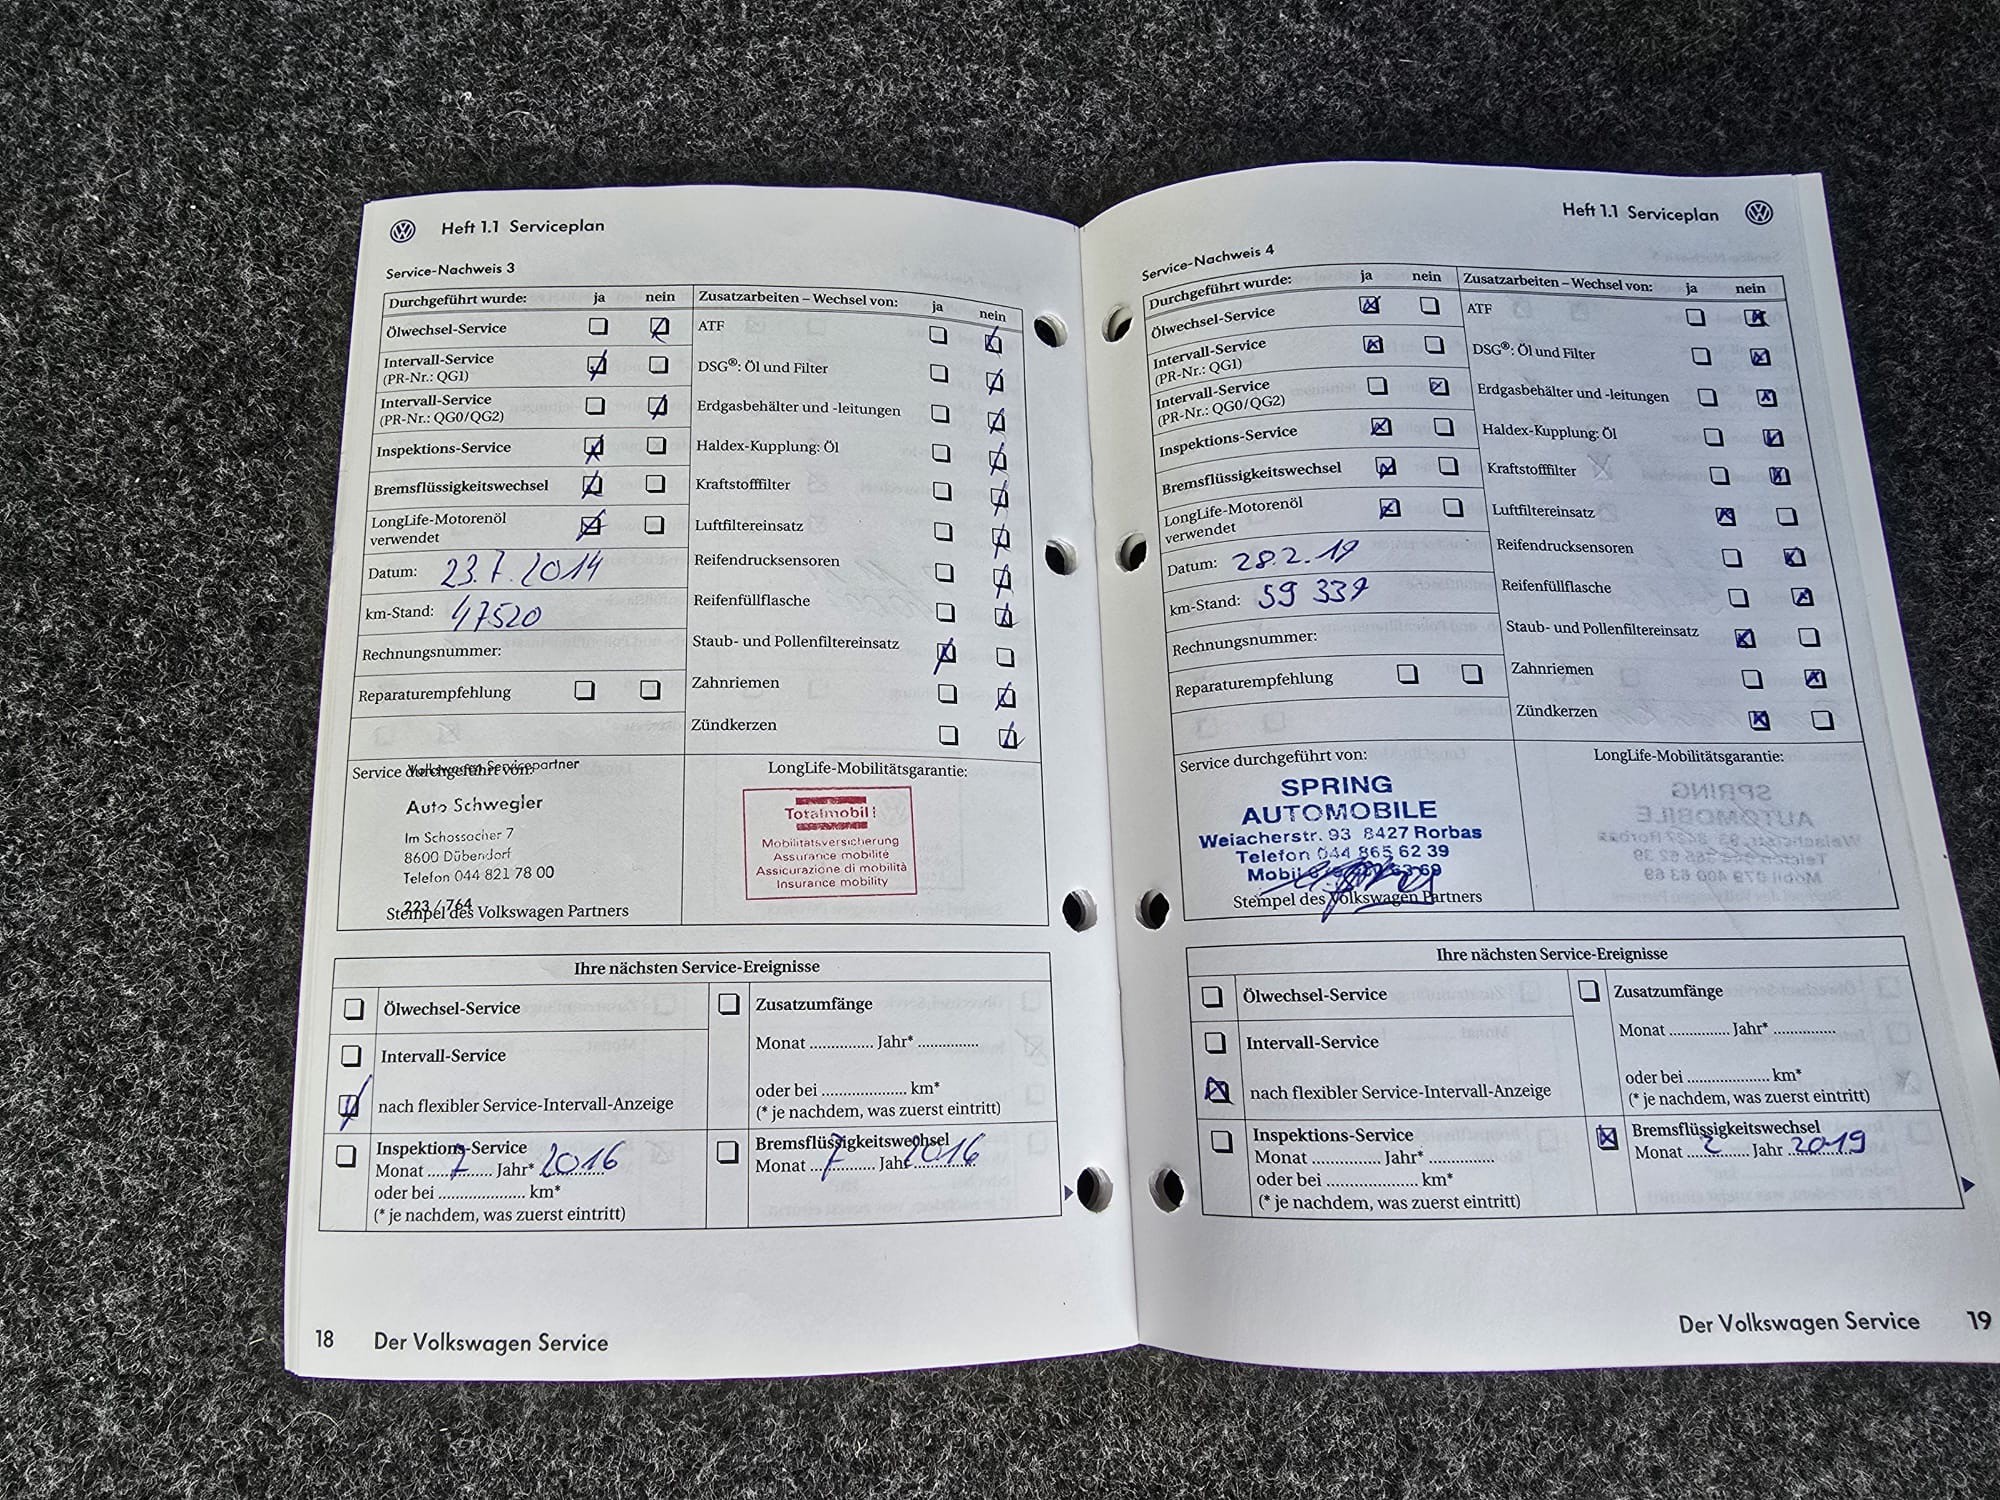 Heft 1.1 Serviceplan
Service-Nachweis 3
Durchgeführt wurde: ja nein
Ölwechsel-Service
Intervall-Service
(PR-Nr.: QG1)
Intervall-Service
(PR-Nr.: QG0/QG2)
Inspektions-Service
Bremsflüssigkeitswechsel
LongLife-Motorenöl
verwendet
Datum: 23.7.2014
km-Stand: 47520
Rechnungsnummer:
Reparaturempfehlung
Zusatzarbeiten – Wechsel von: ja nein
ATF
DSG®: Öl und Filter
Erdgasbehälter und -leitungen
Haldex-Kupplung: Öl
Kraftstofffilter
Luftfiltereinsatz
Reifendrucksensoren
Reifenfüllflasche
Staub- und Pollenfiltereinsatz
Zahnriemen
Zündkerzen
Service durchgeführt von:
Volkswagen Servicepartner
Auto Schwegler
Im Schossacher 7
8600 Dübendorf
Telefon 044 821 78 00
223 / 764
Stempel des Volkswagen Partners
LongLife-Mobilitätsgarantie:
Totalmobil!
Mobilitätsversicherung
Assurance mobilité
Assicurazione di mobilità
Insurance mobility
Ihre nächsten Service-Ereignisse
Ölwechsel-Service
Intervall-Service
nach flexibler Service-Intervall-Anzeige
Inspektions-Service
Monat 7 Jahr* 2016
oder bei .................... km*
(* je nachdem, was zuerst eintritt)
Zusatzumfänge
Monat .............. Jahr* ..............
oder bei .................... km*
(* je nachdem, was zuerst eintritt)
Bremsflüssigkeitswechsel
Monat 7 Jahr 2016
18 Der Volkswagen Service
Heft 1.1 Serviceplan
Service-Nachweis 4
Durchgeführt wurde: ja nein
Ölwechsel-Service
Intervall-Service
(PR-Nr.: QG1)
Intervall-Service
(PR-Nr.: QG0/QG2)
Inspektions-Service
Bremsflüssigkeitswechsel
LongLife-Motorenöl
verwendet
Datum: 28.2.17
km-Stand: 59 337
Rechnungsnummer:
Reparaturempfehlung
Zusatzarbeiten – Wechsel von: ja nein
ATF
DSG®: Öl und Filter
Erdgasbehälter und -leitungen
Haldex-Kupplung: Öl
Kraftstofffilter
Luftfiltereinsatz
Reifendrucksensoren
Reifenfüllflasche
Staub- und Pollenfiltereinsatz
Zahnriemen
Zündkerzen
Service durchgeführt von:
SPRING
AUTOMOBILE
Weiacherstr. 93 8427 Rorbas
Telefon 044 865 62 39
Mobil 079 400 63 69
Stempel des Volkswagen Partners
LongLife-Mobilitätsgarantie:
Ihre nächsten Service-Ereignisse
Ölwechsel-Service
Intervall-Service
nach flexibler Service-Intervall-Anzeige
Inspektions-Service
Monat .............. Jahr* ..............
oder bei .................... km*
(* je nachdem, was zuerst eintritt)
Zusatzumfänge
Monat .............. Jahr* ..............
oder bei .................... km*
(* je nachdem, was zuerst eintritt)
Bremsflüssigkeitswechsel
Monat 2 Jahr 2019
Der Volkswagen Service 19